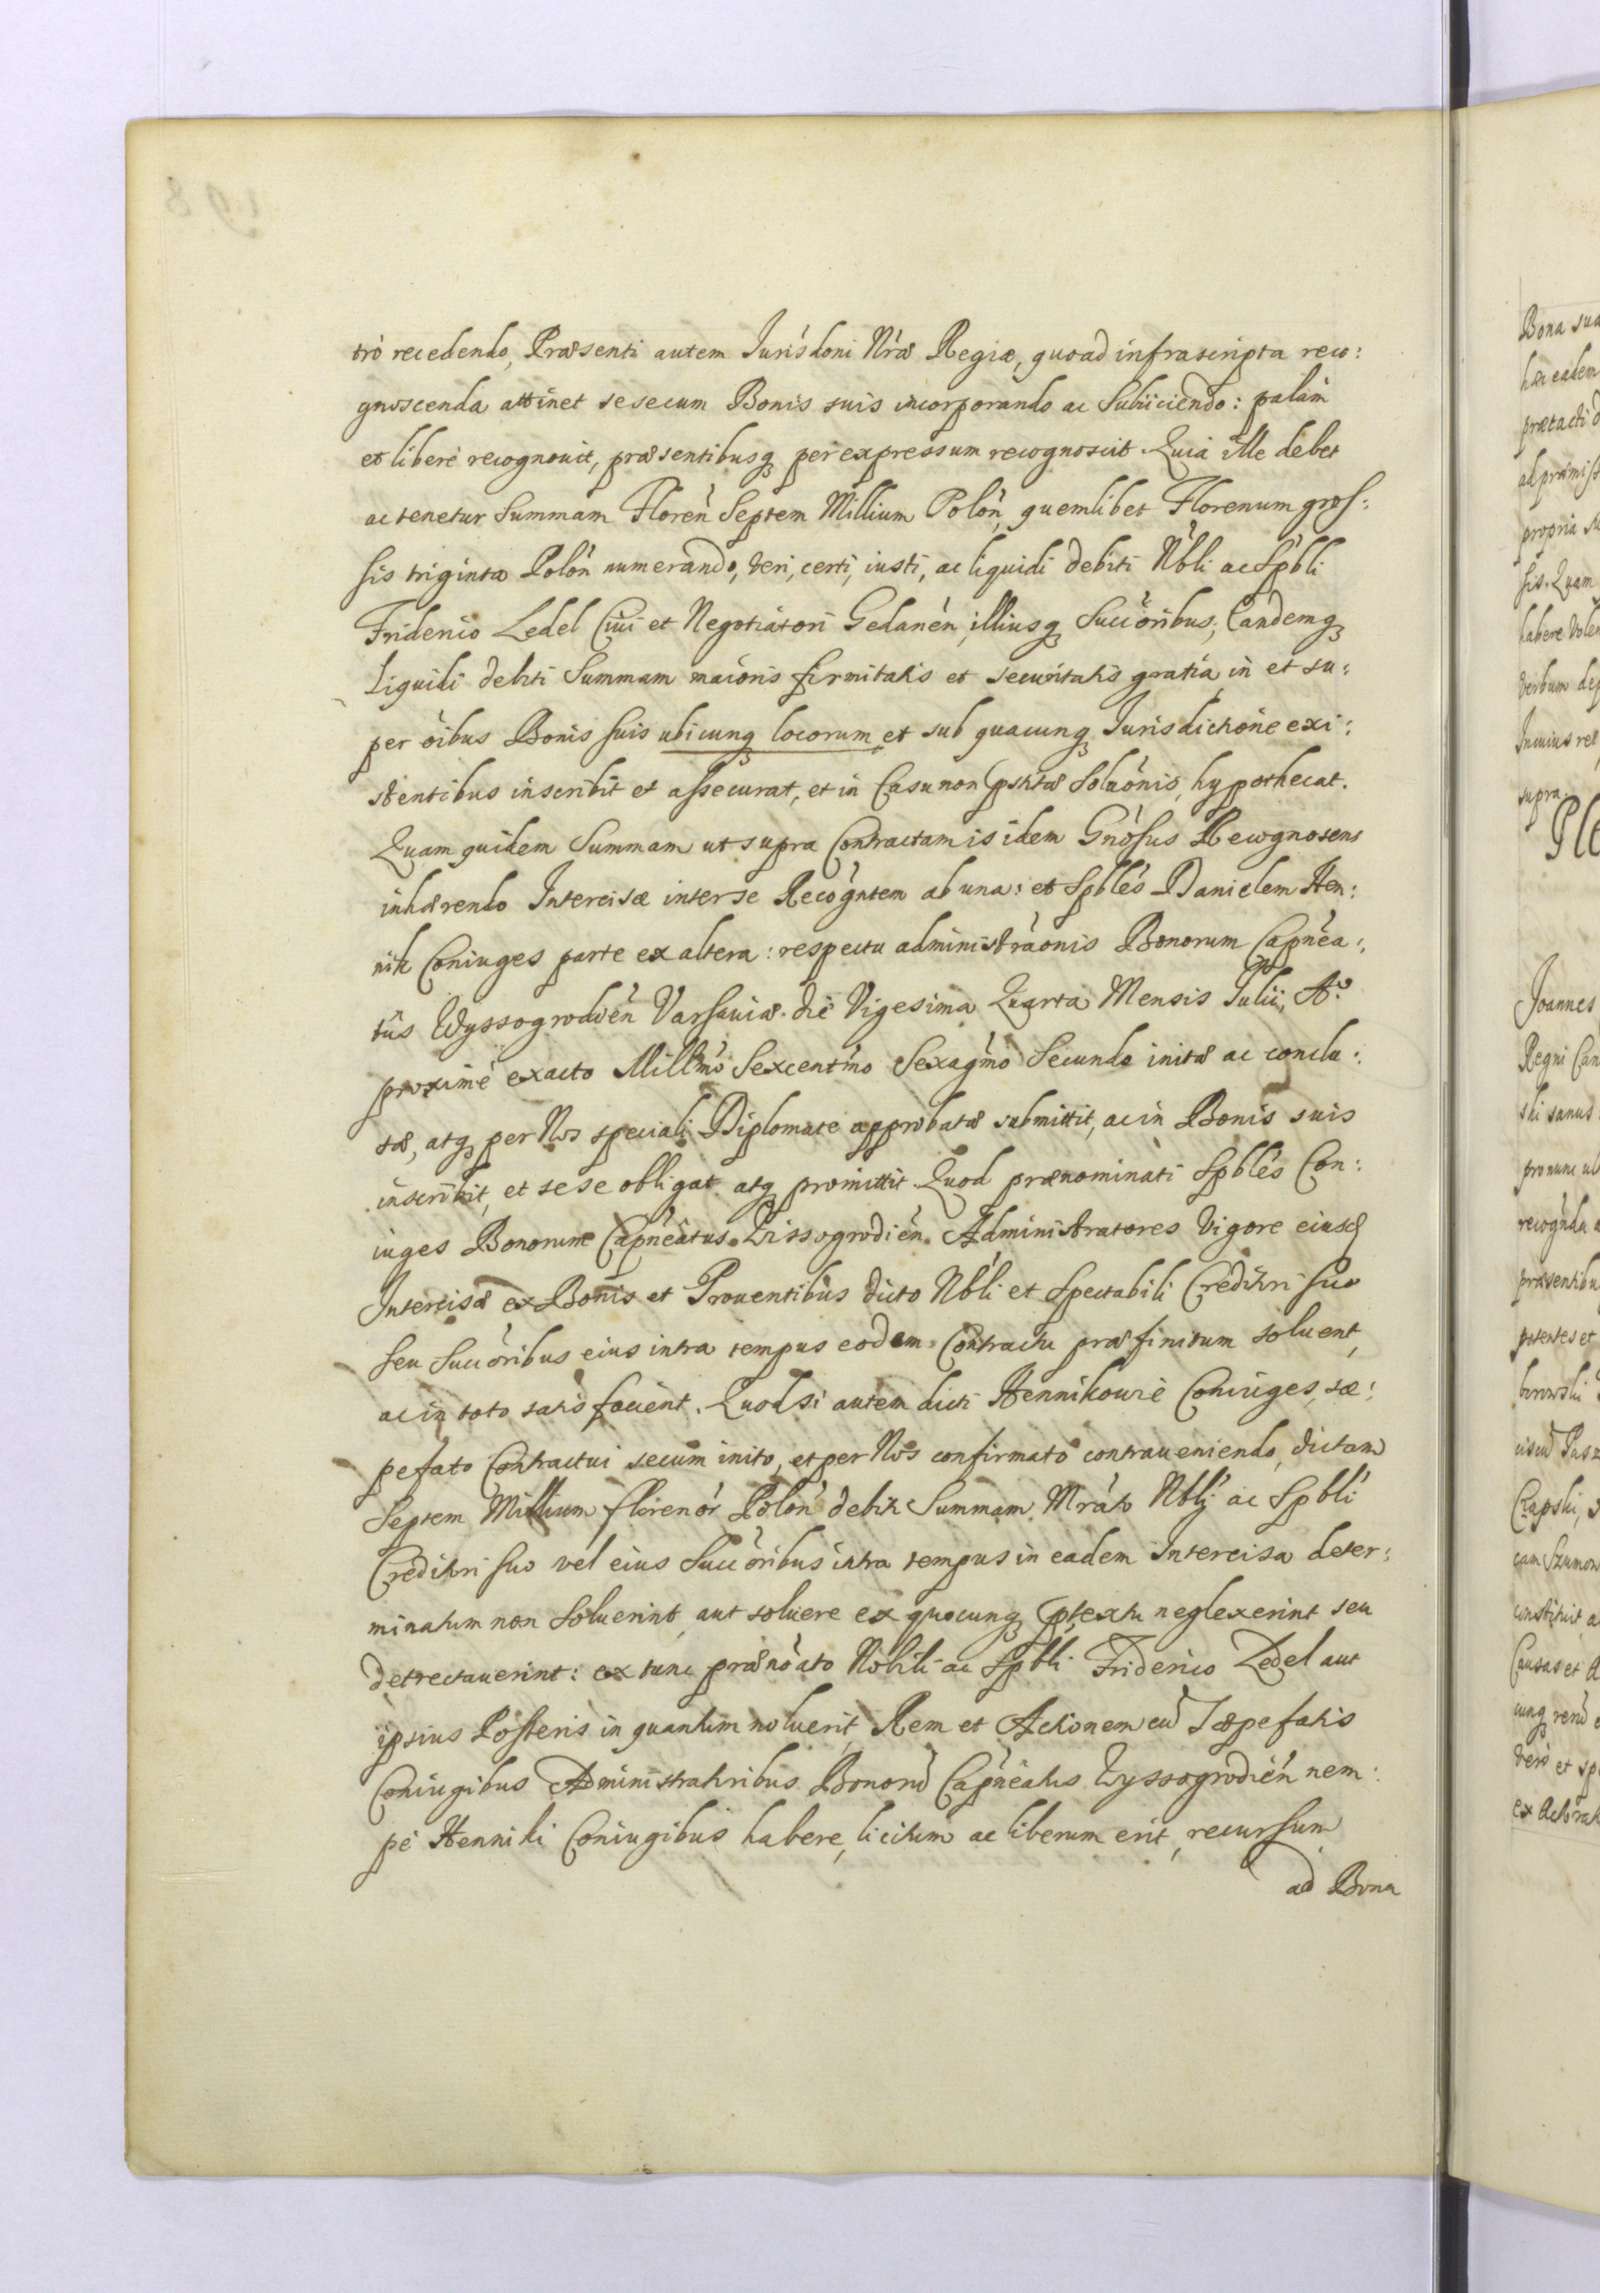 trò recedendo, Præsenti autem Jurisdoni Nræ Regiæ, quoad infrascripta reco:
gnoscenda attinet sesecum Bonis suis incorporando ac Subijciendo: palàm
et liberè recognouit, præsentibusq per expressum recognoscit. Quia ille debet
ac tenetur Summam Floreñ Septem Millium Poloñ, quemlibet Florenum gros:
sis triginta Poloñ numerando, veri, certi, iusti, ac liquidi debiti Nbli ac Spbli
Friderico Zedel Ciui et Negotiatori Gedaneñ, illiusq Succoribus, Eandemq
Liquidi debiti Summam maioris firmitatis et securitatis gratia, in et su:
per oibus Bonis suis ubicunq locorum et sub quacunq Jurisdictione exi:
stentibus inscribit et assecurat, et in Casu non pstitæ Soluonis, hypothecat.
Quam quidem Summam ut supra Contractam is idem Gnosus Recognoscens
inhærendo Intercisæ inter se Recogntem ab una: et Spbles Danielem Hen:
nik Coniuges parte ex altera: respectu administraonis Bonorum Capnea:
tùs Wyssogrodieñ Varsauiæ die Vigesima Quarta Mensis Julij, Aº
proximè exacto Millmo Sexcentmo Sexagmo Secundo initæ ac conclu:
sæ, atq per Nos speciali Diplomate approbatæ submittit, ac in Bonis suis
inscribit, et sese obligat atq promittit. Quod prænominati Spbles Con:
iuges Bonorum Capneatus Wissogrodieñ Administratores Vigore eiusd
Intercisæ ex Bonis et Prouentibus dicto Nbli et Spectabili Creditori suo
seu Succoribus eius intra tempus eodem Contractu præfinitum soluent,
ac in toto satisfacient. Quod si autem dicti Hennikowie Coniuges, sæ:
pefato Contractui secum inito, et per Nos confirmato contraueniendo, dictam
Septem Millium florenor Poloñ debiti Summam Mrato Nblj ac Spbli
Creditori suo vel eius Succoribus intra tempus in eadem Intercisa deter:
minatum non Soluerint, aut soluere ex quocunq ptextu neglexerint seu
detrectauerint: ex tunc prænoato Nobili ac Spbli Friderico Zedel aut
ipsius Posteris in quantum noluerit, Rem et Actionem cu Sæpefatis
Coniugibus Administratoribus Bonoru Capneatus Wyssogrodieñ nem:
pè Henniki Coniugibus habere, licitum ac liberum erit, recursum
ad Bona
Bona sua
hæc eadem
prætacti
propria
sis. Quam
habere
verbum
supra
Joannes
Regni
ski sanus
pro nunc
præsentibu
potentes et
Czapski,
constituit, a
Causas et
et